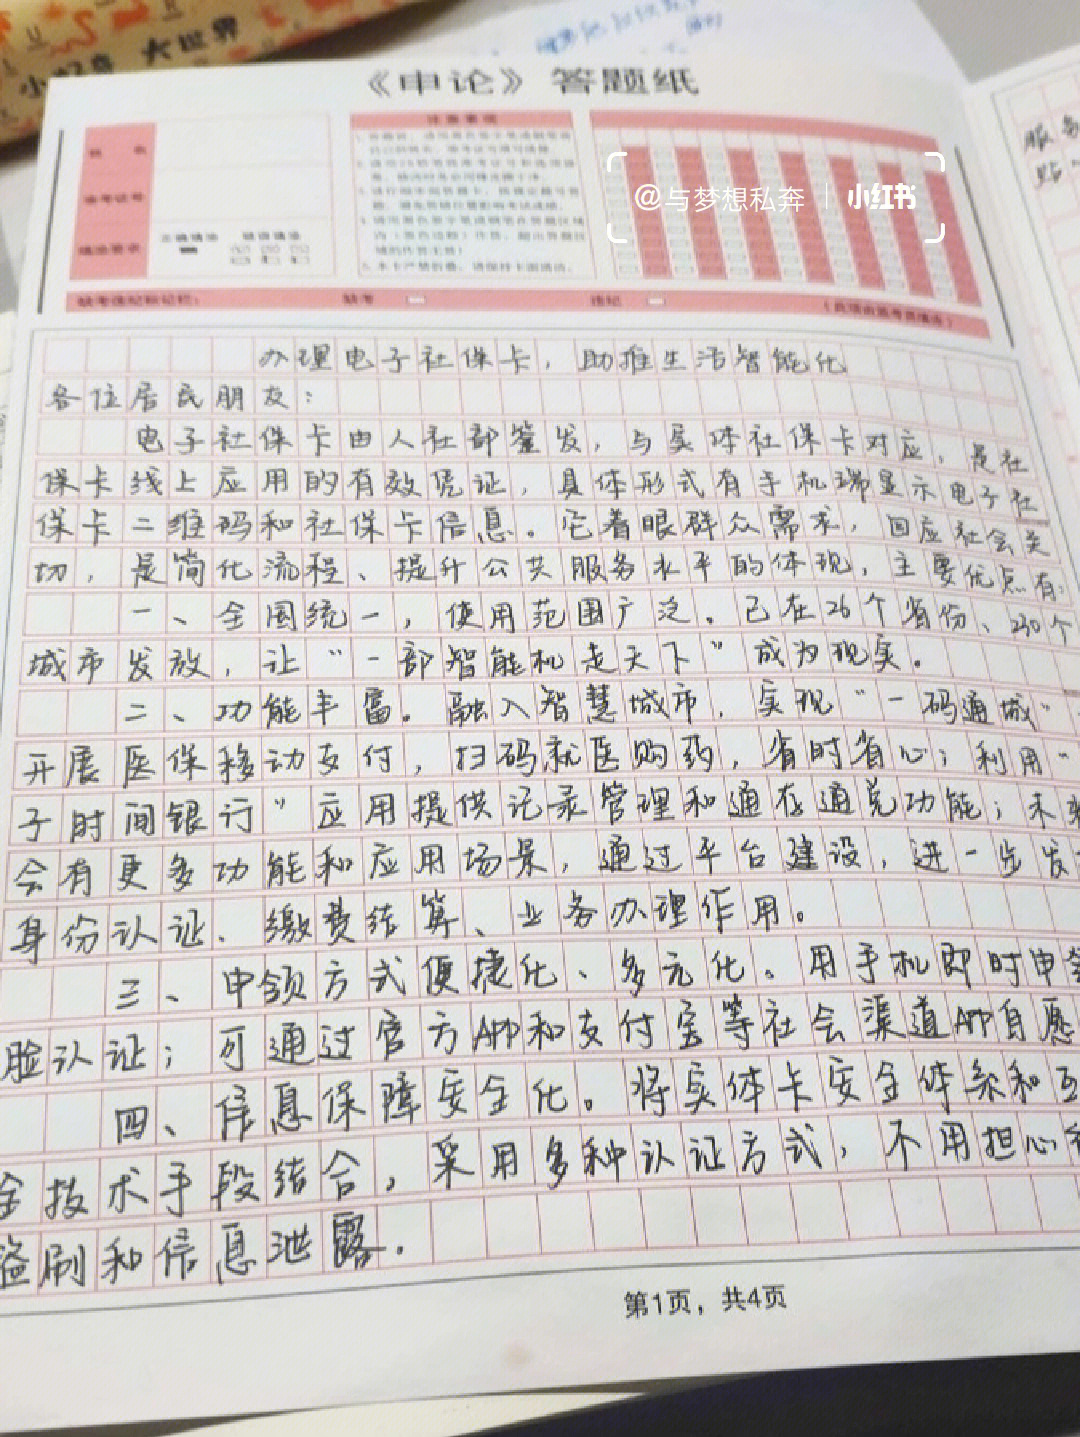 大世界
《申论》答题纸
注意事项
姓名
准考证号
填涂要求
正确填涂
错误填涂
@与梦想私奔
小红书
缺考违纪标记栏:
缺考
违纪
办理电子社保卡，助推生活智能化
各位居民朋友：
电子社保卡由人社部签发，与实体社保卡对应，是社
保卡线上应用的有效凭证，具体形式有手机端显示电子社
保卡二维码和社保卡信息。它着眼群众需求，回应社会关
切，是简化流程、提升公共服务水平的体现，主要优点有：
一、全国统一，使用范围广泛。已在26个省份、230个
城市发放，让“一部智能机走天下”成为现实。
二、功能丰富。融入智慧城市，实现“一码通城”
开展医保移动支付，扫码就医购药，省时省心；利用“
子时间银行”应用提供记录管理和通存通兑功能；未来
会有更多功能和应用场景，通过平台建设，进一步发
身份认证、缴费结算、业务办理作用。
三、申领方式便捷化、多元化。用手机即时申领
脸认证；可通过官方APP和支付宝等社会渠道APP自愿
四、信息保障安全化。将实体卡安全体系和互
全技术手段结合，采用多种认证方式，不用担心
盗刷和信息泄露。
第1页，共4页
服务